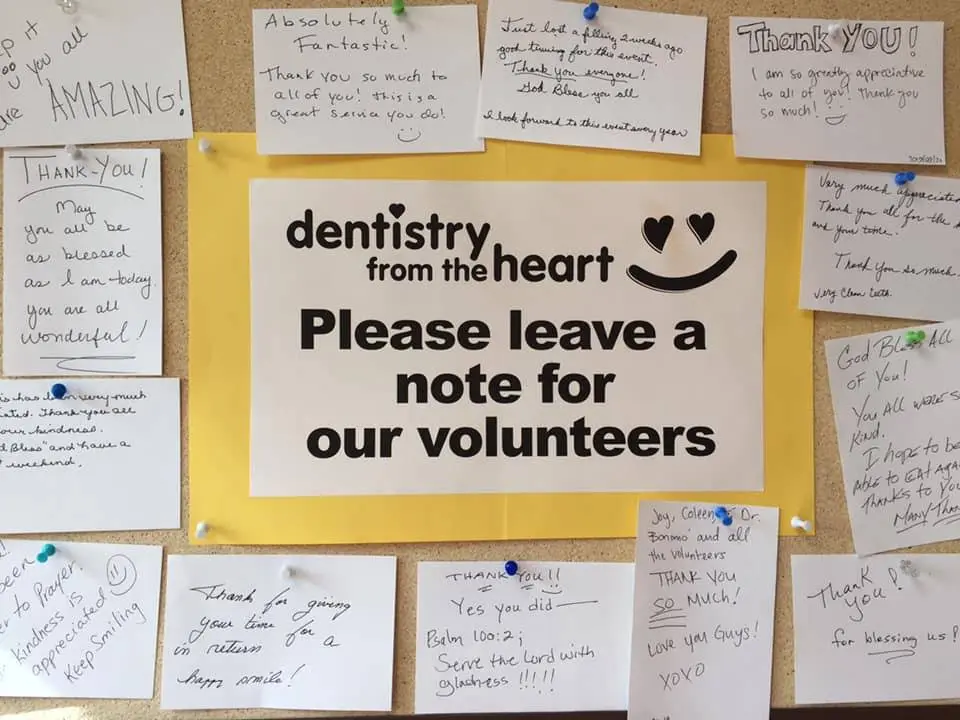 p it
you all
are
AMAZING!
Absolutely
Fantastic!
Thank you so much to
all of you! this is a
great service you do!
Just lost a filling 2 weeks ago
good timing for this event.
Thank you everyone!
God Bless you all
I look forward to this event every year
Thank YOU!
I am so greatly appreciative
to all of you! Thank you
so much!
THANK-YOU!
May
you all be
as blessed
as I am today.
you are all
wonderful!
dentistry
from the heart
Please leave a
note for
our volunteers
Very much appreciated
Thank you all for the
and your time.
Thank you so much.
Very Clean teeth.
God Bless All
of You!
You All were so
Kind.
I hope to be
Able to EAT AgA
THANKS to You
MANY THAN
is has been very much
ated. Thank you all
our kindness.
d Bless" and have a
weekend.
been
er to Prayer.
kindness is
appreciated
Keep Smiling
Thank for giving
your time for a
in return
happy smile!
THANK YOU!!
Yes you did
Psalm 100:2;
Serve the Lord with
gladness !!!!!
Joy, Coleen, & Dr.
Bonimo and all
the volunteers
THANK YOU
SO Much!
Love you Guys!
XOXO
Thank
you!
for blessing us!